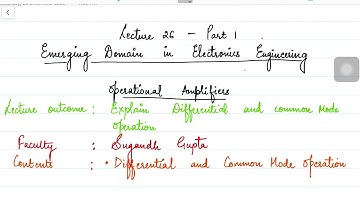 Lecture 26 - Part 1
Emerging Domain in Electronics Engineering
Operational Amplifiers
Lecture outcome : Explain Differential and common Mode
operation
Faculty : Sugandh Gupta
Contents : • Differential and Common Mode Operation